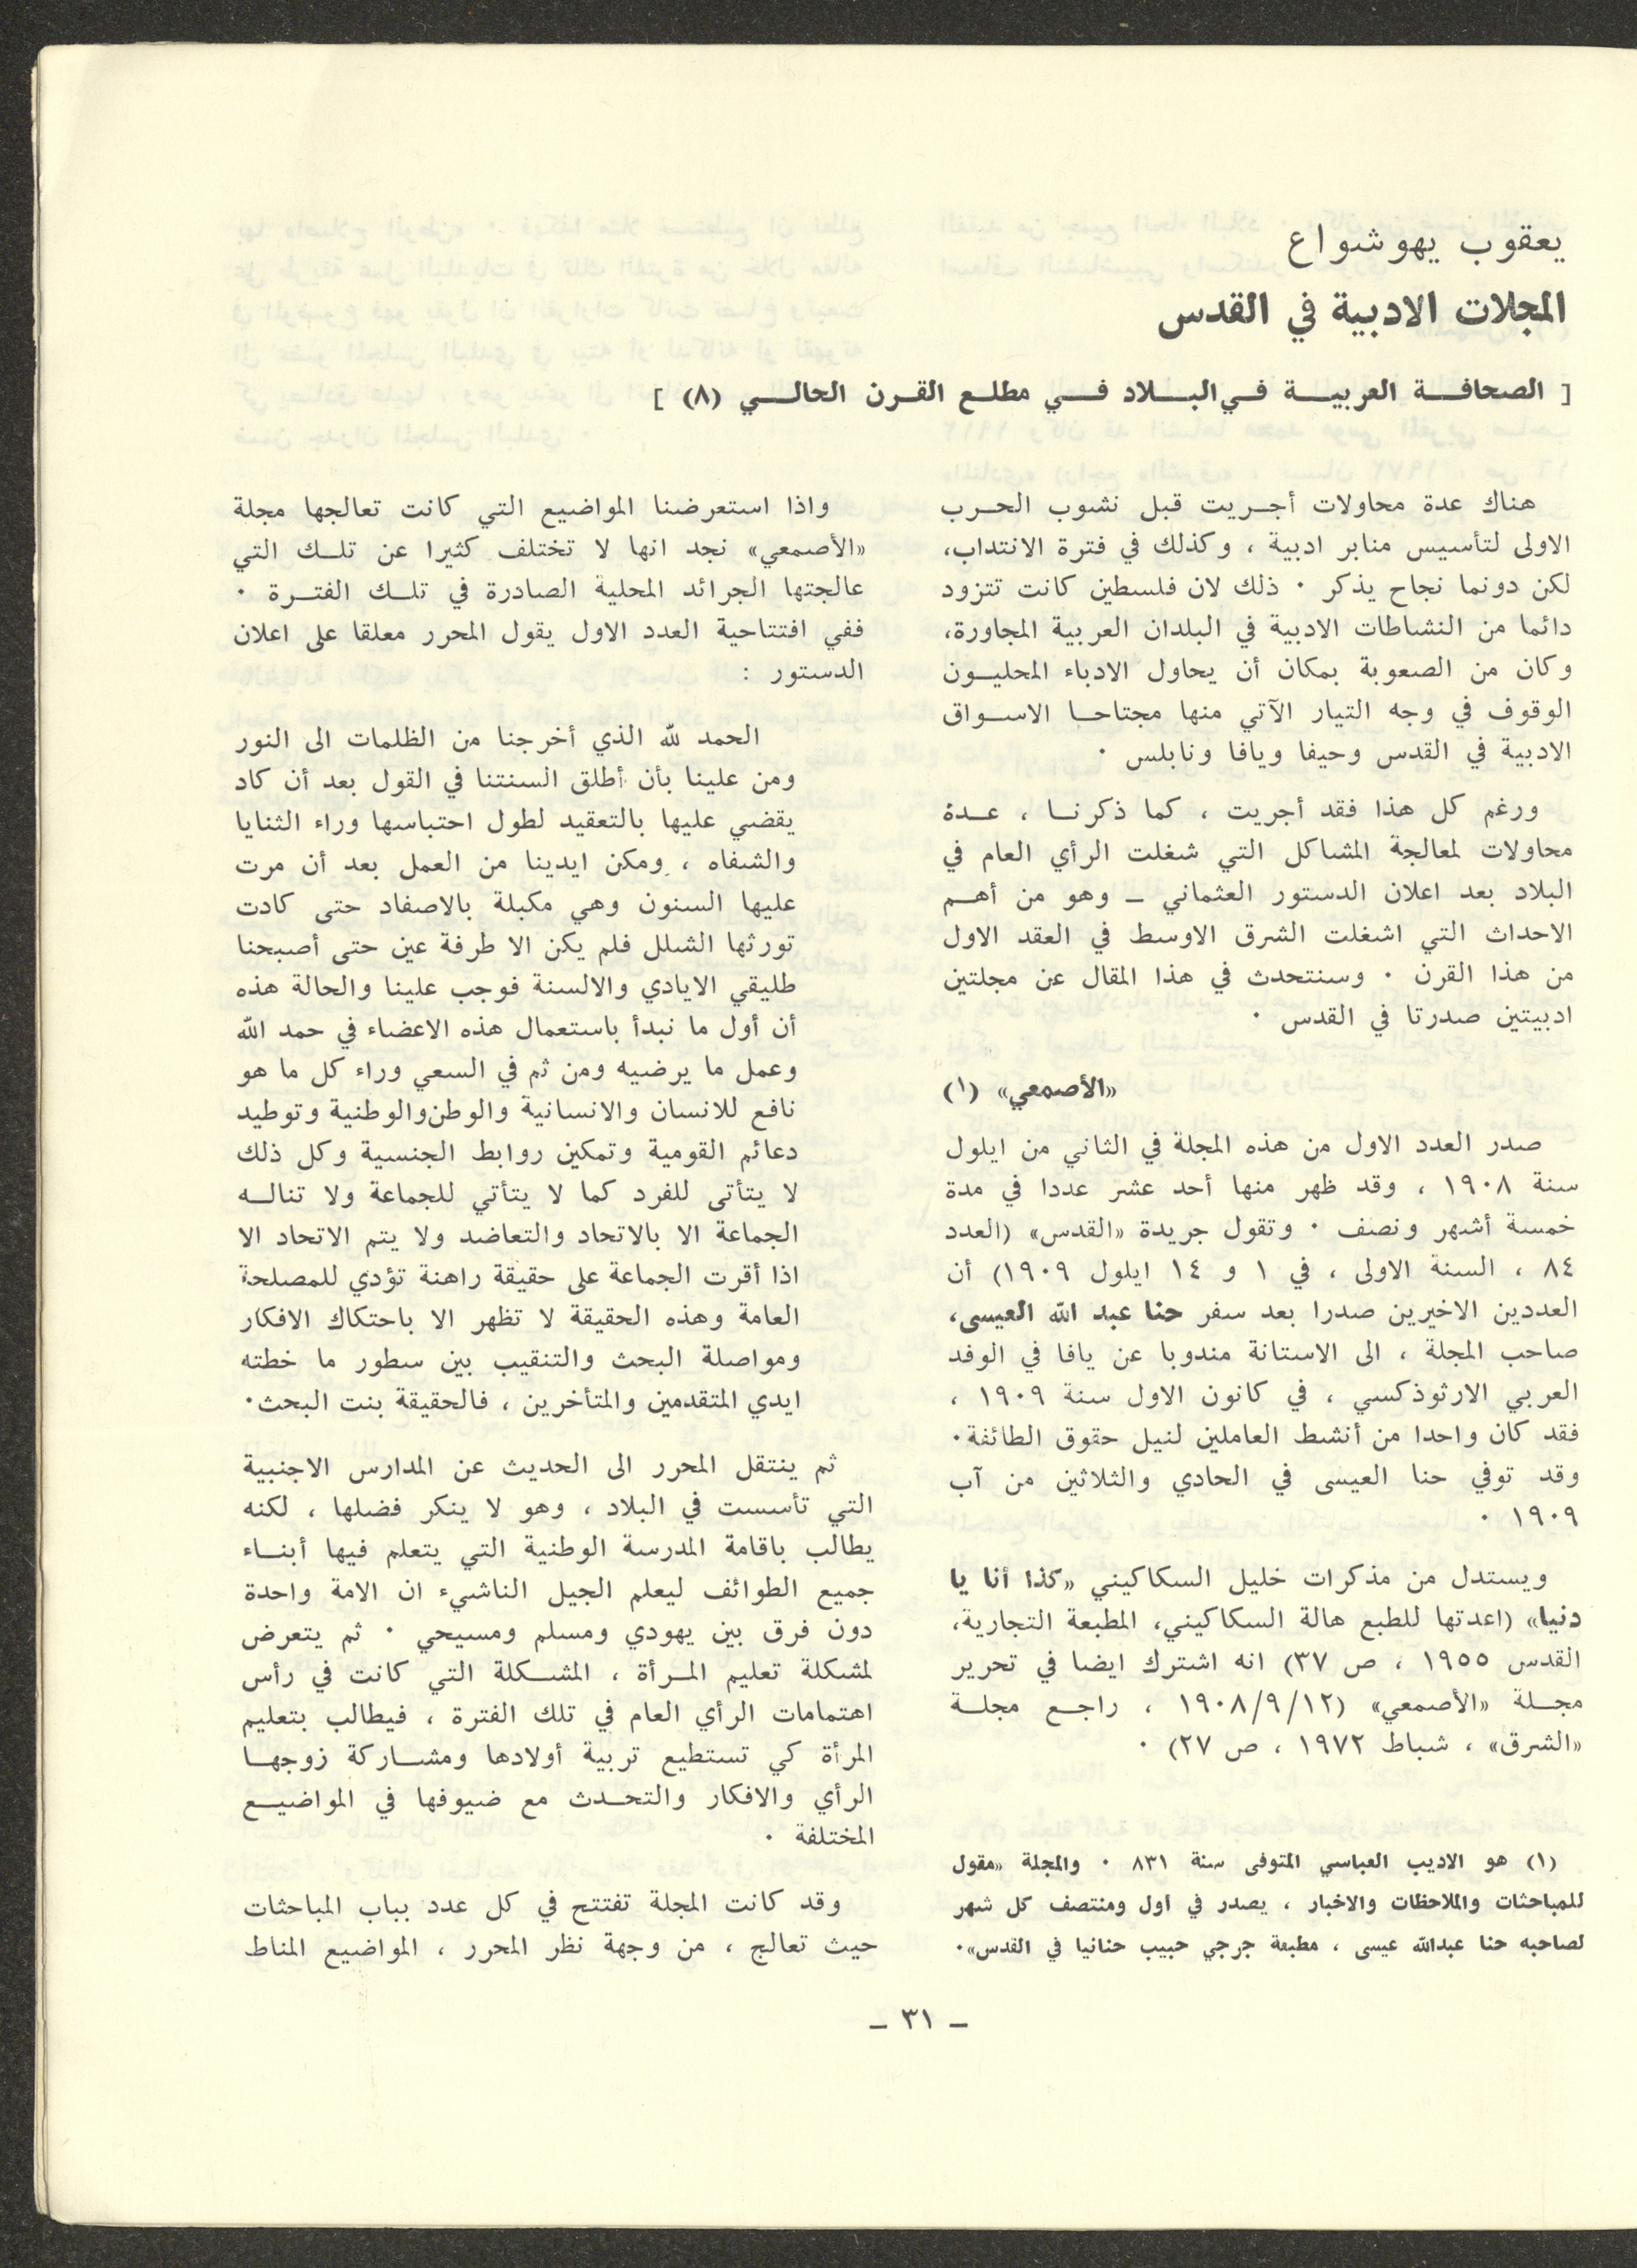 يعقوب يهوشواع
المجلات الادبية في القدس
[ الصحافة العربية في البلاد في مطلع القرن الحالي (٨) ]
هناك عدة محاولات أجريت قبل نشوب الحرب
الاولى لتأسيس منابر ادبية ، وكذلك في فترة الانتداب،
لكن دونما نجاح يذكر ٠ ذلك لان فلسطين كانت تتزود
دائما من النشاطات الادبية في البلدان العربية المجاورة،
وكان من الصعوبة بمكان أن يحاول الادباء المحليون
الوقوف في وجه التيار الآتي منها مجتاحا الاسواق
الادبية في القدس وحيفا ويافا ونابلس ٠
ورغم كل هذا فقد أجريت ، كما ذكرنا ، عدة
محاولات لمعالجة المشاكل التي شغلت الرأي العام في
البلاد بعد اعلان الدستور العثماني ــ وهو من أهم
الاحداث التي اشغلت الشرق الاوسط في العقد الاول
من هذا القرن ٠ وسنتحدث في هذا المقال عن مجلتين
ادبيتين صدرتا في القدس ٠
«الأصمعي» (١)
صدر العدد الاول من هذه المجلة في الثاني من ايلول
سنة ١٩٠٨ ، وقد ظهر منها أحد عشر عددا في مدة
خمسة أشهر ونصف ٠ وتقول جريدة «القدس» (العدد
٨٤ ، السنة الاولى ، في ١ و ١٤ ايلول ١٩٠٩) أن
العددين الاخيرين صدرا بعد سفر حنا عبد الله العيسى،
صاحب المجلة ، الى الاستانة مندوبا عن يافا في الوفد
العربي الارثوذكسي ، في كانون الاول سنة ١٩٠٩ ،
فقد كان واحدا من أنشط العاملين لنيل حقوق الطائفة٠
وقد توفي حنا العيسى في الحادي والثلاثين من آب
١٩٠٩ ٠
ويستدل من مذكرات خليل السكاكيني «كذا أنا يا
دنيا» (اعدتها للطبع هالة السكاكيني، المطبعة التجارية،
القدس ١٩٥٥ ، ص ٣٧) انه اشترك ايضا في تحرير
مجلة «الأصمعي» (١٩٠٨/٩/١٢ ، راجع مجلة
«الشرق» ، شباط ١٩٧٢ ، ص ٢٧) ٠
(١) هو الاديب العباسي المتوفى سنة ٨٣١ ٠ والمجلة «مقول
للمباحثات والملاحظات والاخبار ، يصدر في أول ومنتصف كل شهر
لصاحبه حنا عبدالله عيسى ، مطبعة جرجي حبيب حنانيا في القدس»٠
واذا استعرضنا المواضيع التي كانت تعالجها مجلة
«الأصمعي» نجد انها لا تختلف كثيرا عن تلك التي
عالجتها الجرائد المحلية الصادرة في تلك الفترة ٠
ففي افتتاحية العدد الاول يقول المحرر معلقا على اعلان
الدستور :
الحمد لله الذي أخرجنا من الظلمات الى النور
ومن علينا بأن أطلق السنتنا في القول بعد أن كاد
يقضي عليها بالتعقيد لطول احتباسها وراء الثنايا
والشفاه ، ومكن ايدينا من العمل بعد أن مرت
عليها السنون وهي مكبلة بالاصفاد حتى كادت
تورثها الشلل فلم يكن الا طرفة عين حتى أصبحنا
طليقي الايادي والالسنة فوجب علينا والحالة هذه
أن أول ما نبدأ باستعمال هذه الاعضاء في حمد الله
وعمل ما يرضيه ومن ثم في السعي وراء كل ما هو
نافع للانسان والانسانية والوطن والوطنية وتوطيد
دعائم القومية وتمكين روابط الجنسية وكل ذلك
لا يتأتى للفرد كما لا يتأتي للجماعة ولا تناله
الجماعة الا بالاتحاد والتعاضد ولا يتم الاتحاد الا
اذا أقرت الجماعة على حقيقة راهنة تؤدي للمصلحة
العامة وهذه الحقيقة لا تظهر الا باحتكاك الافكار
ومواصلة البحث والتنقيب بين سطور ما خطته
ايدي المتقدمين والمتأخرين ، فالحقيقة بنت البحث٠
ثم ينتقل المحرر الى الحديث عن المدارس الاجنبية
التي تأسست في البلاد ، وهو لا ينكر فضلها ، لكنه
يطالب باقامة المدرسة الوطنية التي يتعلم فيها أبناء
جميع الطوائف ليعلم الجيل الناشيء ان الامة واحدة
دون فرق بين يهودي ومسلم ومسيحي ٠ ثم يتعرض
لمشكلة تعليم المرأة ، المشكلة التي كانت في رأس
اهتمامات الرأي العام في تلك الفترة ، فيطالب بتعليم
المرأة كي تستطيع تربية أولادها ومشاركة زوجها
الرأي والافكار والتحدث مع ضيوفها في المواضيع
المختلفة ٠
وقد كانت المجلة تفتتح في كل عدد بباب المباحثات
حيث تعالج ، من وجهة نظر المحرر ، المواضيع المناط
ــ ٣١ ــ